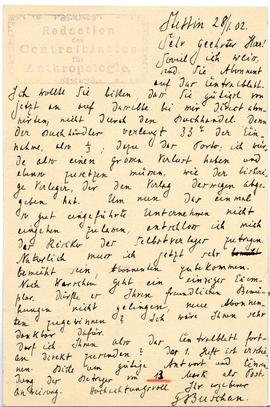 Redaction
des
Centralblattes
für
Anthropologie.
Stettin 28/1.02.
Sehr geehrter Herr!
Soviel ich weiss,
sind Sie Abonnent
auf das Centralblatt.
Ich wollte Sie bitten dass Sie gütigst von
jetzt an auf dasselbe bei mir direct abon-
nirten, nicht durch den Buchhandel. Denn
der Buchhändler verlangt 33% der Ein-
nahme, also 1/3; dazu das Porto, ich wür-
de also einen grossen Verlust haben und
ebenso zusetzen müssen, wie der bisheri-
ge Verleger, der den Verlag deswegen abge-
geben hat. Um nun das einmal
so gut eingeführte Unternehmen nicht
eingehen zu lassen, entschloss ich mich
das Risiko der Selbstverleger zu tragen.
Natürlich muss ich jetzt sehr
bemüht sein, Abonnenten zu bekommen.
Nach Warschau geht ein einziges Exem-
plar. Dürfte es Ihren freundlichen Bemü-
hungen nicht gelingen, neue Abonnen-
ten zu gewinnen? Ich wäre Ihnen sehr
dankbar dafür.
Darf ich Ihnen also das Centralblatt fort-
an direkt zusenden? das 1. Heft ist erschie-
nen. Bitte um gütige Antwort und Einsen-
dung des Betrages von 13 Mark als Post-
anweisung. Hochachtungsvoll Ihr ergebener
GBuschan.